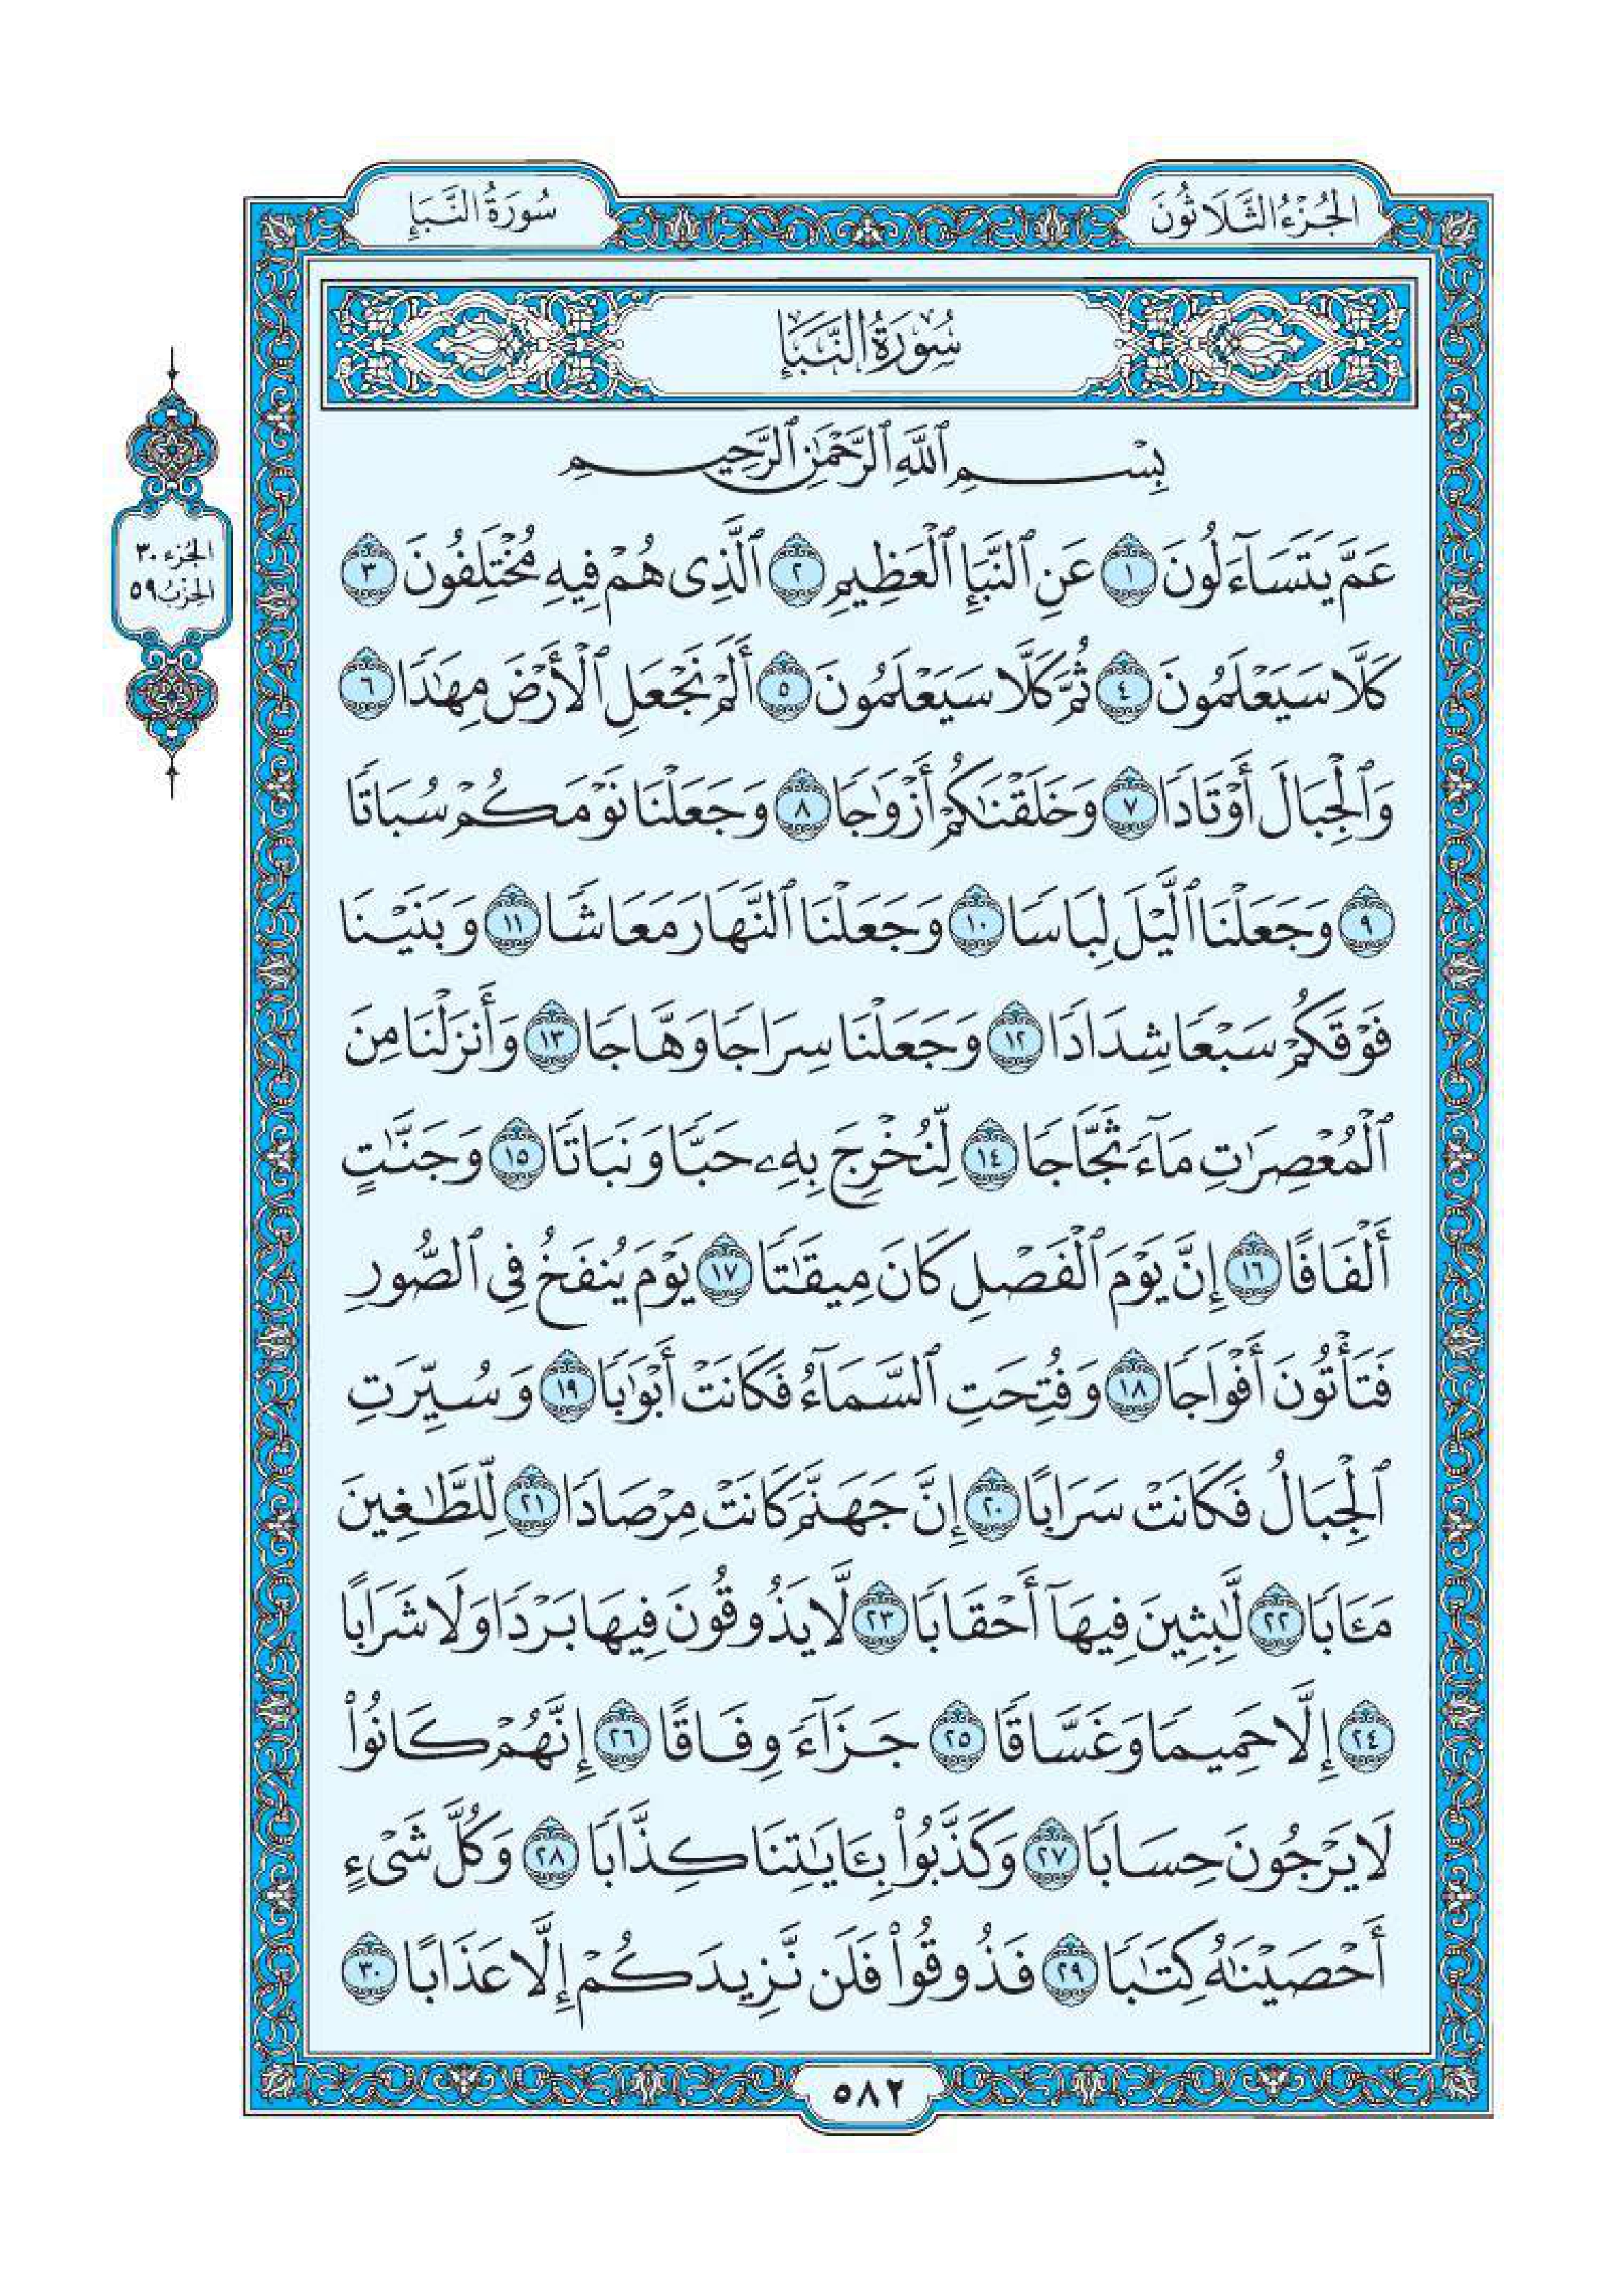 الجُزْءُ الثَّلَاثُونَ
سُورَةُ النَّبَإِ
سُورَةُ النَّبَإِ
بِسْمِ ٱللَّهِ ٱلرَّحْمَٰنِ ٱلرَّحِيمِ
الجُزء ٣٠
الحِزْبُ ٥٩
عَمَّ يَتَسَآءَلُونَ ١ عَنِ ٱلنَّبَإِ ٱلْعَظِيمِ ٢ ٱلَّذِى هُمْ فِيهِ مُخْتَلِفُونَ ٣
كَلَّا سَيَعْلَمُونَ ٤ ثُمَّ كَلَّا سَيَعْلَمُونَ ٥ أَلَمْ نَجْعَلِ ٱلْأَرْضَ مِهَٰدًا ٦
وَٱلْجِبَالَ أَوْتَادًا ٧ وَخَلَقْنَٰكُمْ أَزْوَٰجًا ٨ وَجَعَلْنَا نَوْمَكُمْ سُبَاتًا
٩ وَجَعَلْنَا ٱلَّيْلَ لِبَاسًا ١٠ وَجَعَلْنَا ٱلنَّهَارَ مَعَاشًا ١١ وَبَنَيْنَا
فَوْقَكُمْ سَبْعًا شِدَادًا ١٢ وَجَعَلْنَا سِرَاجًا وَهَّاجًا ١٣ وَأَنزَلْنَا مِنَ
ٱلْمُعْصِرَٰتِ مَآءً ثَجَّاجًا ١٤ لِّنُخْرِجَ بِهِۦ حَبًّا وَنَبَاتًا ١٥ وَجَنَّٰتٍ
أَلْفَافًا ١٦ إِنَّ يَوْمَ ٱلْفَصْلِ كَانَ مِيقَٰتًا ١٧ يَوْمَ يُنفَخُ فِى ٱلصُّورِ
فَتَأْتُونَ أَفْوَاجًا ١٨ وَفُتِحَتِ ٱلسَّمَآءُ فَكَانَتْ أَبْوَٰبًا ١٩ وَسُيِّرَتِ
ٱلْجِبَالُ فَكَانَتْ سَرَابًا ٢٠ إِنَّ جَهَنَّمَ كَانَتْ مِرْصَادًا ٢١ لِّلطَّٰغِينَ
مَـَٔابًا ٢٢ لَّٰبِثِينَ فِيهَآ أَحْقَابًا ٢٣ لَّا يَذُوقُونَ فِيهَا بَرْدًا وَلَا شَرَابًا
٢٤ إِلَّا حَمِيمًا وَغَسَّاقًا ٢٥ جَزَآءً وِفَاقًا ٢٦ إِنَّهُمْ كَانُوا۟
لَا يَرْجُونَ حِسَابًا ٢٧ وَكَذَّبُوا۟ بِـَٔايَٰتِنَا كِذَّابًا ٢٨ وَكُلَّ شَىْءٍ
أَحْصَيْنَٰهُ كِتَٰبًا ٢٩ فَذُوقُوا۟ فَلَن نَّزِيدَكُمْ إِلَّا عَذَابًا ٣٠
٥٨٢